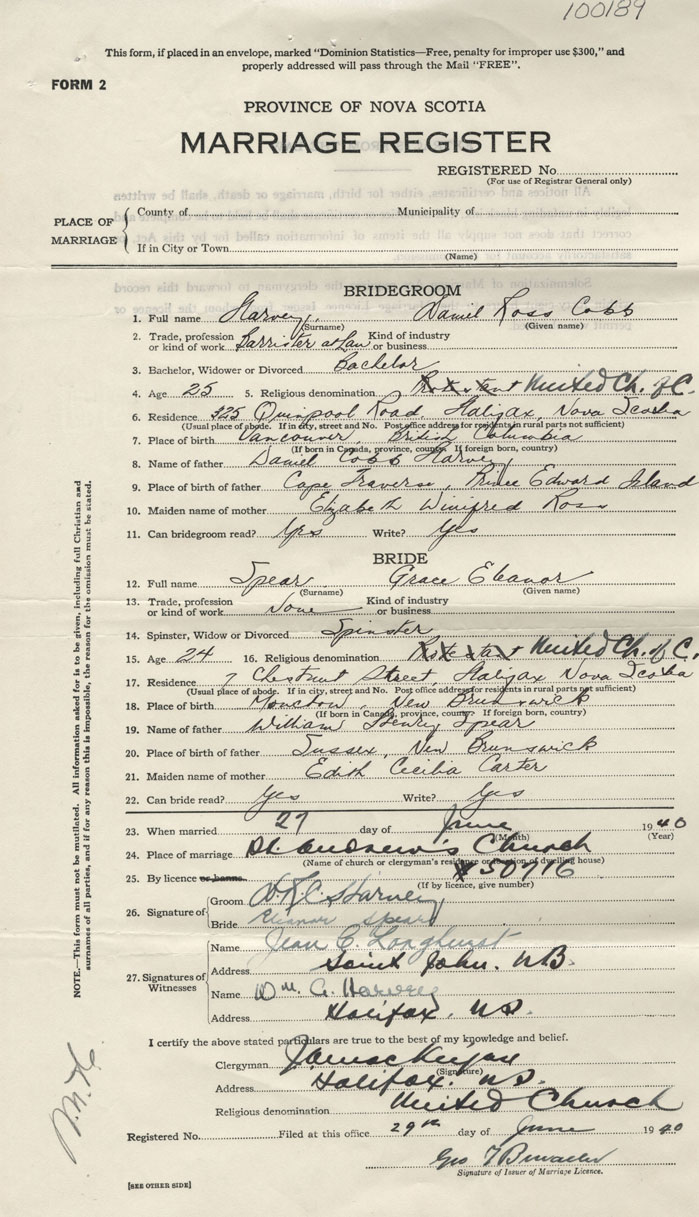 100189
This form, if placed in an envelope, marked "Dominion Statistics—Free, penalty for improper use $300," and
properly addressed will pass through the Mail "FREE".
FORM 2
PROVINCE OF NOVA SCOTIA
MARRIAGE REGISTER
REGISTERED No.
(For use of Registrar General only)
PLACE OF MARRIAGE
County of Municipality of
If in City or Town
(Name)
BRIDEGROOM
1. Full name Harvey, Daniel Ross Cobb
(Surname) (Given name)
2. Trade, profession or kind of work Barrister at Law Kind of industry or business
3. Bachelor, Widower or Divorced Bachelor
4. Age 25 5. Religious denomination Protestant United Ch. of C.
6. Residence 325 Quinpool Road, Halifax, Nova Scotia
(Usual place of abode. If in city, street and No. Post office address for residents in rural parts not sufficient)
7. Place of birth Vancouver, British Columbia
(If born in Canada, province, county. If foreign born, country)
8. Name of father Daniel Cobb Harvey
9. Place of birth of father Cape Traverse, Prince Edward Island
10. Maiden name of mother Elizabeth Winifred Ross
11. Can bridegroom read? Yes Write? Yes
BRIDE
12. Full name Spear Grace Eleanor
(Surname) (Given name)
13. Trade, profession or kind of work None Kind of industry or business
14. Spinster, Widow or Divorced Spinster
15. Age 24 16. Religious denomination Protestant United Ch. of C.
17. Residence 7 Chestnut Street, Halifax Nova Scotia
(Usual place of abode. If in city, street and No. Post office address for residents in rural parts not sufficient)
18. Place of birth Moncton, New Brunswick
(If born in Canada, province, county. If foreign born, country)
19. Name of father William Henry Spear
20. Place of birth of father Sussex, New Brunswick
21. Maiden name of mother Edith Cecilia Carter
22. Can bride read? Yes Write? Yes
23. When married 29 day of June 1940
(Month) (Year)
24. Place of marriage St. Andrew's Church
(Name of church or clergyman's residence or location of dwelling house)
25. By licence or banns 50716
(If by licence, give number)
26. Signature of Groom D.R.C. Harvey
Bride Eleanor Spear
27. Signatures of Witnesses
Name Jean C. Longhurst
Address Saint John, N.B.
Name Wm. G. Harvey
Address Halifax, N.S.
I certify the above stated particulars are to the best of my knowledge and belief.
Clergyman
(Signature)
Address Halifax. N.S.
Religious denomination United Church
Registered No. Filed at this office 29th day of June 1940
Geo
Signature of Issuer of Marriage Licence.
[SEE OTHER SIDE]
NOTE.—This form must not be mutilated. All information asked for is to be given, including full Christian and
surnames of all parties, and if for any reason this is impossible, the reason for the omission must be stated.